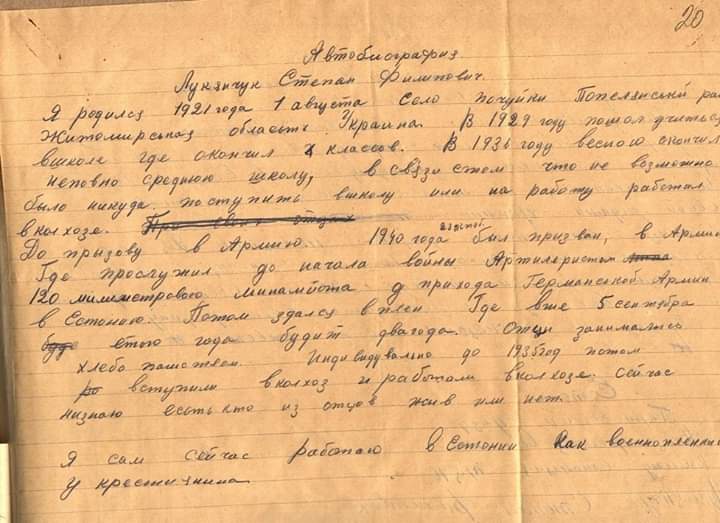 20
Автобиография
Лукянчук Степан Филипович.
Я родился 1921 года 1 августа Село почуйки Попелянський рай
Житомирьская область Украина. В 1929 году пошол учиться
вшколе где окончил 7 классов. В 1936 году весною окончил
неповно среднюю школу, в связи стем что не возможно
было никуда поступить вшколу или на работу работал
вколхозе.
До призову в Армию. 1940 года был призван, в Армию
Где прослужил до начала войны Артилеристом
120 милиметрового минамйота д прихода Германской Армии
в Естонию. Потом здался вплен Где вже 5 сентября
етого года будит двагода. Отцы занимались
хлебо пашеством. Индивидувально до 1935год потом
вступили вколхоз и работали вколхозе. Сейчас
низнаю есьть кто из отцов жив или нет.
Я сам сейчас работаю в Естонии Как военнопленный
У крестиянина.